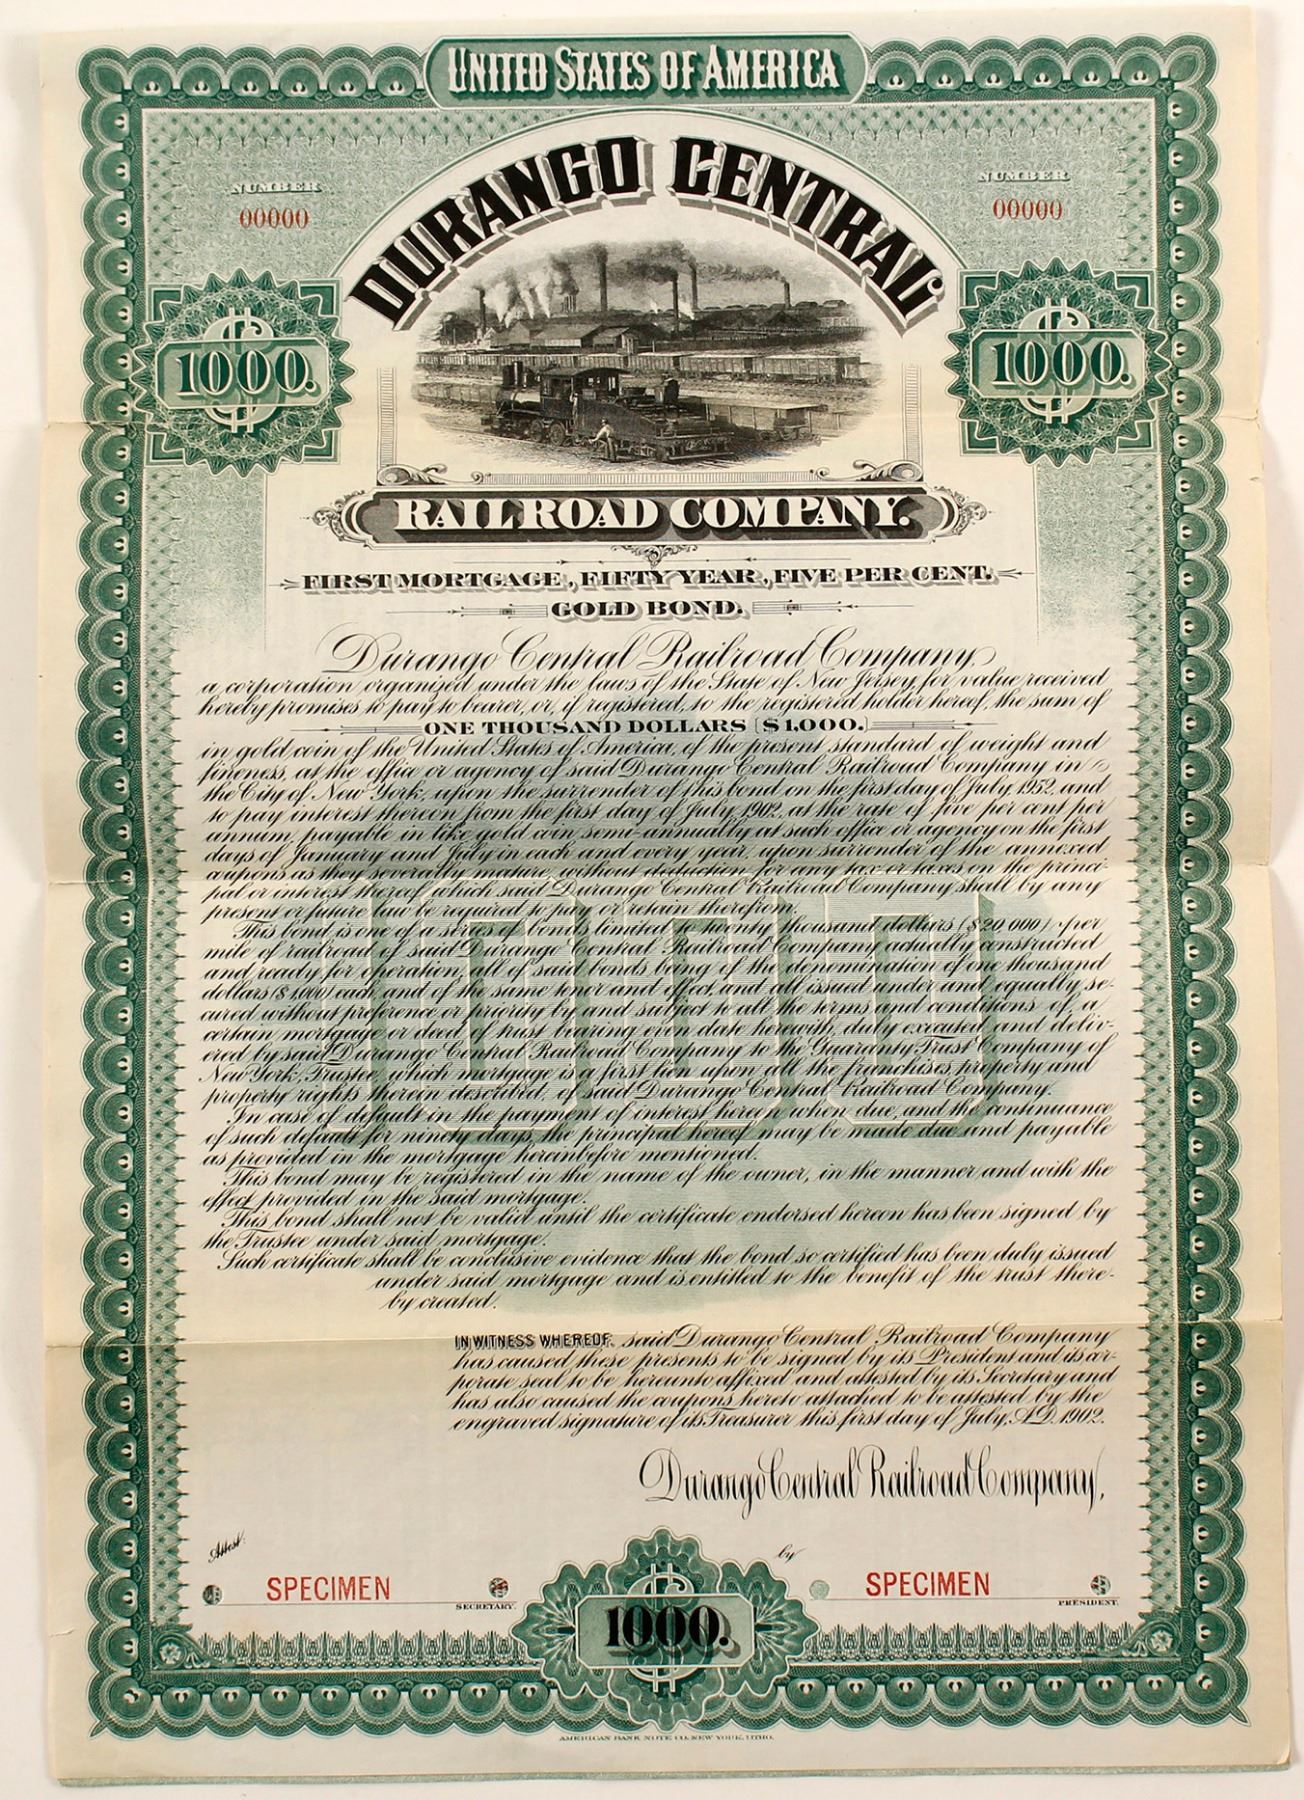 UNITED STATES OF AMERICA
NUMBER
00000
NUMBER
00000
DURANGO CENTRAL
1000.
1000.
RAILROAD COMPANY.
FIRST MORTGAGE, FIFTY YEAR, FIVE PER CENT.
GOLD BOND.
Durango Central Railroad Company,
a corporation organized under the laws of the State of New Jersey, for value received
hereby promises to pay to bearer, or, if registered, to the registered holder hereof, the sum of
ONE THOUSAND DOLLARS ($1,000.)
in gold coin of the United States of America, of the present standard of weight and
fineness, at the office or agency of said Durango Central Railroad Company in
the City of New York, upon the surrender of this bond on the first day of July, 1952, and
to pay interest thereon from the first day of July, 1902, at the rate of five per cent per
annum, payable in like gold coin semi-annually at such office or agency on the first
days of January and July in each and every year, upon surrender of the annexed
coupons as they severally mature, without deduction for any tax or taxes on the princi-
pal or interest thereof which said Durango Central Railroad Company shall by any
present or future law be required to pay or retain therefrom.
This bond is one of a series of bonds limited to twenty thousand dollars ($20,000) per
mile of railroad of said Durango Central Railroad Company actually constructed
and ready for operation, all of said bonds being of the denomination of one thousand
dollars ($1,000) each, and of the same tenor and effect, and all issued under and equally se-
cured without preference or priority by and subject to all the terms and conditions of a
certain mortgage or deed of trust bearing even date herewith, duly executed and deliv-
ered by said Durango Central Railroad Company to the Guaranty Trust Company of
New York, Trustee, which mortgage is a first lien upon all the franchises, property and
property rights therein described, of said Durango Central Railroad Company.
In case of default in the payment of interest hereon when due, and the continuance
of such default for ninety days, the principal hereof may be made due and payable
as provided in the mortgage hereinbefore mentioned.
This bond may be registered in the name of the owner, in the manner and with the
effect provided in the said mortgage.
This bond shall not be valid until the certificate endorsed hereon has been signed by
the Trustee under said mortgage.
Such certificate shall be conclusive evidence that the bond so certified has been duly issued
under said mortgage and is entitled to the benefit of the trust there-
by created.
IN WITNESS WHEREOF, said Durango Central Railroad Company
has caused these presents to be signed by its President and its cor-
porate seal to be hereunto affixed and attested by its Secretary and
has also caused the coupons hereto attached to be attested by the
engraved signature of its Treasurer this first day of July, A.D. 1902.
Durango Central Railroad Company,
Attest:
by
SPECIMEN
SECRETARY.
SPECIMEN
PRESIDENT.
1000.
AMERICAN BANK NOTE CO. NEW YORK, LITHO.